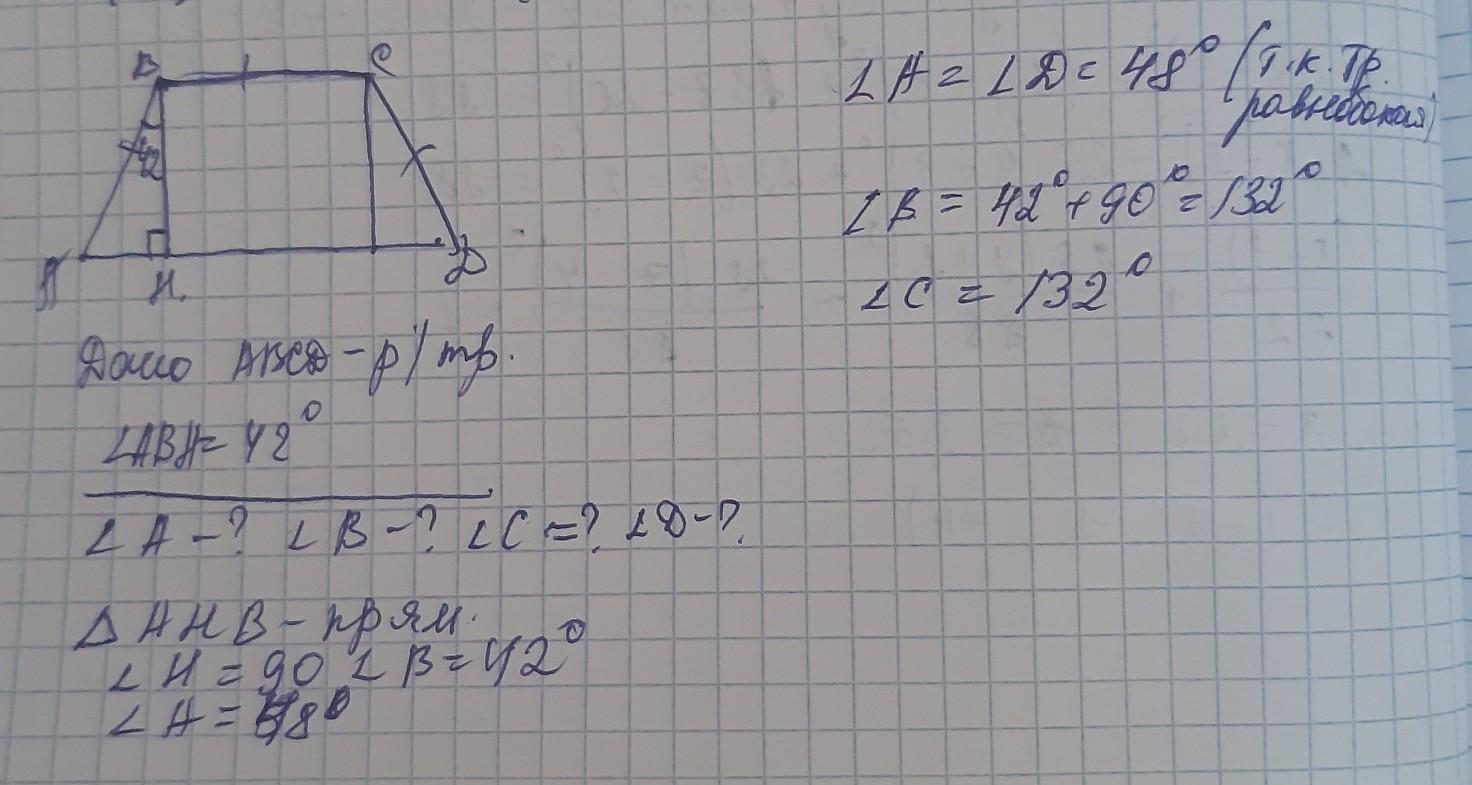 B
C
42
A
H.
D
Дано ABCD - р/тр.
∠ABH = 42°
∠A - ? ∠B - ? ∠C = ? ∠D - ?.
Δ AHB - прям.
∠H = 90 ∠B = 42°
∠A = 48°
∠A = ∠D = 48° (т.к. тр.
равнобокая)
∠B = 42° + 90° = 132°
∠C = 132°